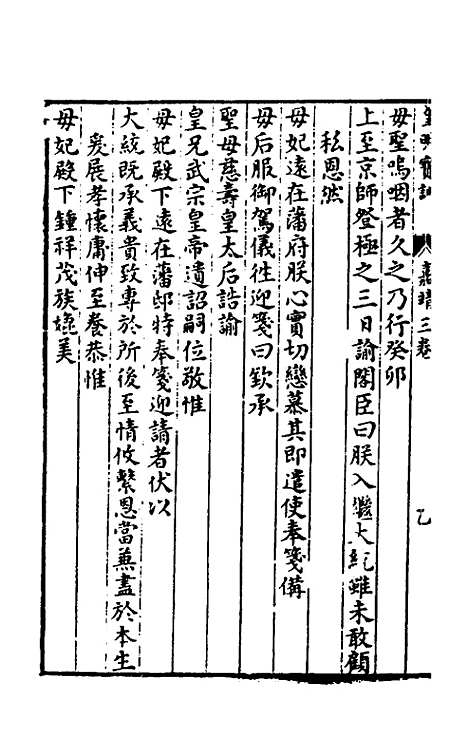 皇明寶訓 嘉靖三卷 乙
母聖嗚咽者久之乃行癸卯
上至京師登極之三日諭閣臣曰朕入繼大統雖未敢顧
私恩然
母妃遠在藩府朕心實切戀慕其即遣使奉箋備
母后服御駕儀徃迎箋曰欽承
聖母慈壽皇太后誥諭
皇兄武宗皇帝遺詔嗣位敬惟
母妃殿下遠在藩邸特奉箋迎請者伏以
大統既承義貴致專於所後至情攸繫恩當兼盡於本生
爰展孝懷庸伸至養恭惟
母妃殿下鍾祥茂族媲美